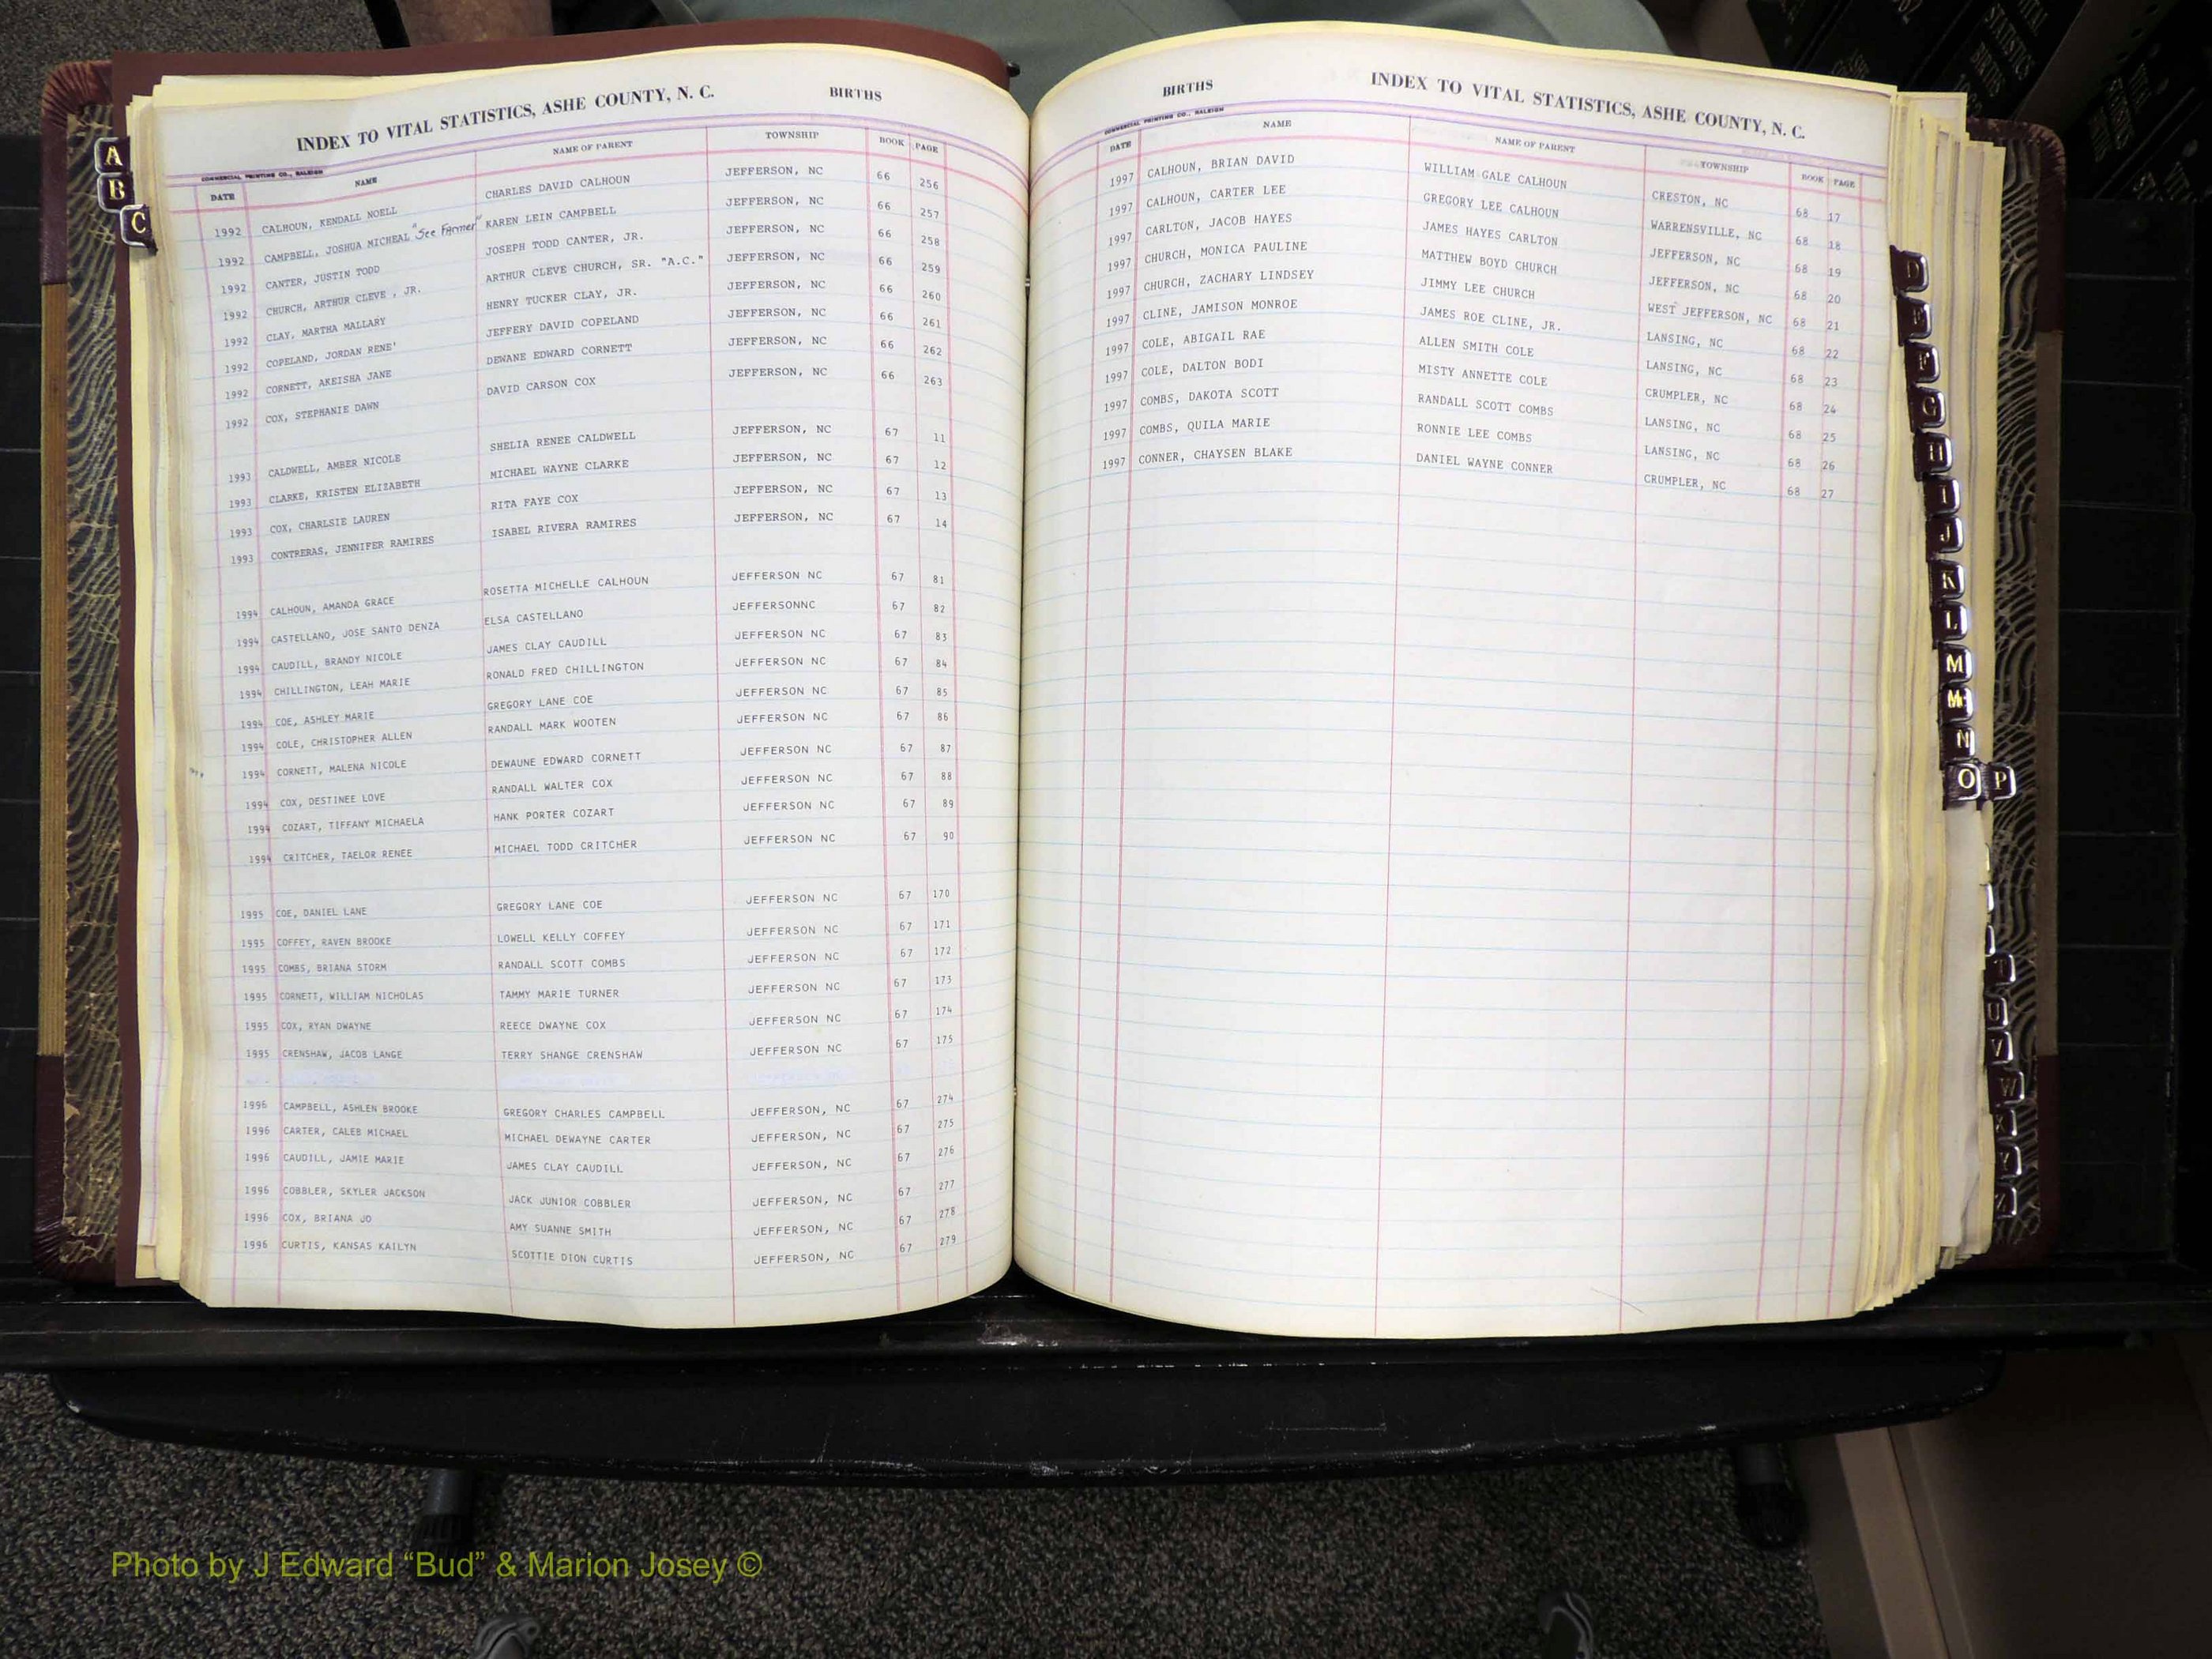 INDEX TO VITAL STATISTICS, ASHE COUNTY, N. C. BIRTHS
COMMERCIAL PRINTING CO., RALEIGH
DATE NAME NAME OF PARENT TOWNSHIP BOOK PAGE
1992 CALHOUN, KENDALL NOELL CHARLES DAVID CALHOUN JEFFERSON, NC 66 256
1992 CAMPBELL, JOSHUA MICHEAL "See Farmer" KAREN LEIN CAMPBELL JEFFERSON, NC 66 257
1992 CANTER, JUSTIN TODD JOSEPH TODD CANTER, JR. JEFFERSON, NC 66 258
1992 CHURCH, ARTHUR CLEVE , JR. ARTHUR CLEVE CHURCH, SR. "A.C." JEFFERSON, NC 66 259
1992 CLAY, MARTHA MALLARY HENRY TUCKER CLAY, JR. JEFFERSON, NC 66 260
1992 COPELAND, JORDAN RENE' JEFFERY DAVID COPELAND JEFFERSON, NC 66 261
1992 CORNETT, AKEISHA JANE DEWANE EDWARD CORNETT JEFFERSON, NC 66 262
1992 COX, STEPHANIE DAWN DAVID CARSON COX JEFFERSON, NC 66 263
1993 CALDWELL, AMBER NICOLE SHELIA RENEE CALDWELL JEFFERSON, NC 67 11
1993 CLARKE, KRISTEN ELIZABETH MICHAEL WAYNE CLARKE JEFFERSON, NC 67 12
1993 COX, CHARLSIE LAUREN RITA FAYE COX JEFFERSON, NC 67 13
1993 CONTRERAS, JENNIFER RAMIRES ISABEL RIVERA RAMIRES JEFFERSON, NC 67 14
1994 CALHOUN, AMANDA GRACE ROSETTA MICHELLE CALHOUN JEFFERSON NC 67 81
1994 CASTELLANO, JOSE SANTO DENZA ELSA CASTELLANO JEFFERSONNC 67 82
1994 CAUDILL, BRANDY NICOLE JAMES CLAY CAUDILL JEFFERSON NC 67 83
1994 CHILLINGTON, LEAH MARIE RONALD FRED CHILLINGTON JEFFERSON NC 67 84
1994 COE, ASHLEY MARIE GREGORY LANE COE JEFFERSON NC 67 85
1994 COLE, CHRISTOPHER ALLEN RANDALL MARK WOOTEN JEFFERSON NC 67 86
1994 CORNETT, MALENA NICOLE DEWAUNE EDWARD CORNETT JEFFERSON NC 67 87
1994 COX, DESTINEE LOVE RANDALL WALTER COX JEFFERSON NC 67 88
1994 COZART, TIFFANY MICHAELA HANK PORTER COZART JEFFERSON NC 67 89
1994 CRITCHER, TAELOR RENEE MICHAEL TODD CRITCHER JEFFERSON NC 67 90
1995 COE, DANIEL LANE GREGORY LANE COE JEFFERSON NC 67 170
1995 COFFEY, RAVEN BROOKE LOWELL KELLY COFFEY JEFFERSON NC 67 171
1995 COMBS, BRIANA STORM RANDALL SCOTT COMBS JEFFERSON NC 67 172
1995 CORNETT, WILLIAM NICHOLAS TAMMY MARIE TURNER JEFFERSON NC 67 173
1995 COX, RYAN DWAYNE REECE DWAYNE COX JEFFERSON NC 67 174
1995 CRENSHAW, JACOB LANGE TERRY SHANGE CRENSHAW JEFFERSON NC 67 175
1996 CAMPBELL, ASHLEN BROOKE GREGORY CHARLES CAMPBELL JEFFERSON, NC 67 274
1996 CARTER, CALEB MICHAEL MICHAEL DEWAYNE CARTER JEFFERSON, NC 67 275
1996 CAUDILL, JAMIE MARIE JAMES CLAY CAUDILL JEFFERSON, NC 67 276
1996 COBBLER, SKYLER JACKSON JACK JUNIOR COBBLER JEFFERSON, NC 67 277
1996 COX, BRIANA JO AMY SUANNE SMITH JEFFERSON, NC 67 278
1996 CURTIS, KANSAS KAILYN SCOTTIE DION CURTIS JEFFERSON, NC 67 279
BIRTHS INDEX TO VITAL STATISTICS, ASHE COUNTY, N. C.
COMMERCIAL PRINTING CO., RALEIGH
DATE NAME NAME OF PARENT TOWNSHIP BOOK PAGE
1997 CALHOUN, BRIAN DAVID WILLIAM GALE CALHOUN CRESTON, NC 68 17
1997 CALHOUN, CARTER LEE GREGORY LEE CALHOUN WARRENSVILLE, NC 68 18
1997 CARLTON, JACOB HAYES JAMES HAYES CARLTON JEFFERSON, NC 68 19
1997 CHURCH, MONICA PAULINE MATTHEW BOYD CHURCH JEFFERSON, NC 68 20
1997 CHURCH, ZACHARY LINDSEY JIMMY LEE CHURCH WEST JEFFERSON, NC 68 21
1997 CLINE, JAMISON MONROE JAMES ROE CLINE, JR. LANSING, NC 68 22
1997 COLE, ABIGAIL RAE ALLEN SMITH COLE LANSING, NC 68 23
1997 COLE, DALTON BODI MISTY ANNETTE COLE CRUMPLER, NC 68 24
1997 COMBS, DAKOTA SCOTT RANDALL SCOTT COMBS LANSING, NC 68 25
1997 COMBS, QUILA MARIE RONNIE LEE COMBS LANSING, NC 68 26
1997 CONNER, CHAYSEN BLAKE DANIEL WAYNE CONNER CRUMPLER, NC 68 27
A
B
C
D
E
F
G
H
I
J
K
L
M
Mc
N
O P
T
U
V
W
X
Y
Z
VITAL
STATISTICS
BIRTHS
Photo by J Edward “Bud” & Marion Josey ©